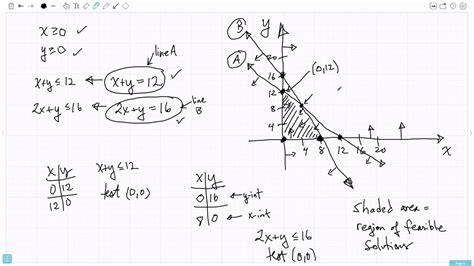 x ≥ 0 ✓
y ≥ 0 ✓
line A
x+y ≤ 12 ← x+y = 12 ✓
2x+y ≤ 16 ← 2x+y = 16 ✓
line B
x y
0 12
12 0
x+y ≤ 12
test (0,0)
x y
0 16 ← y-int
8 0 ← x-int
2x+y ≤ 16
test (0,0)
B
y
A
20
16
12
8
4
(0,12)
4 8 12 16 20
x
Shaded area =
region of feasible
solutions